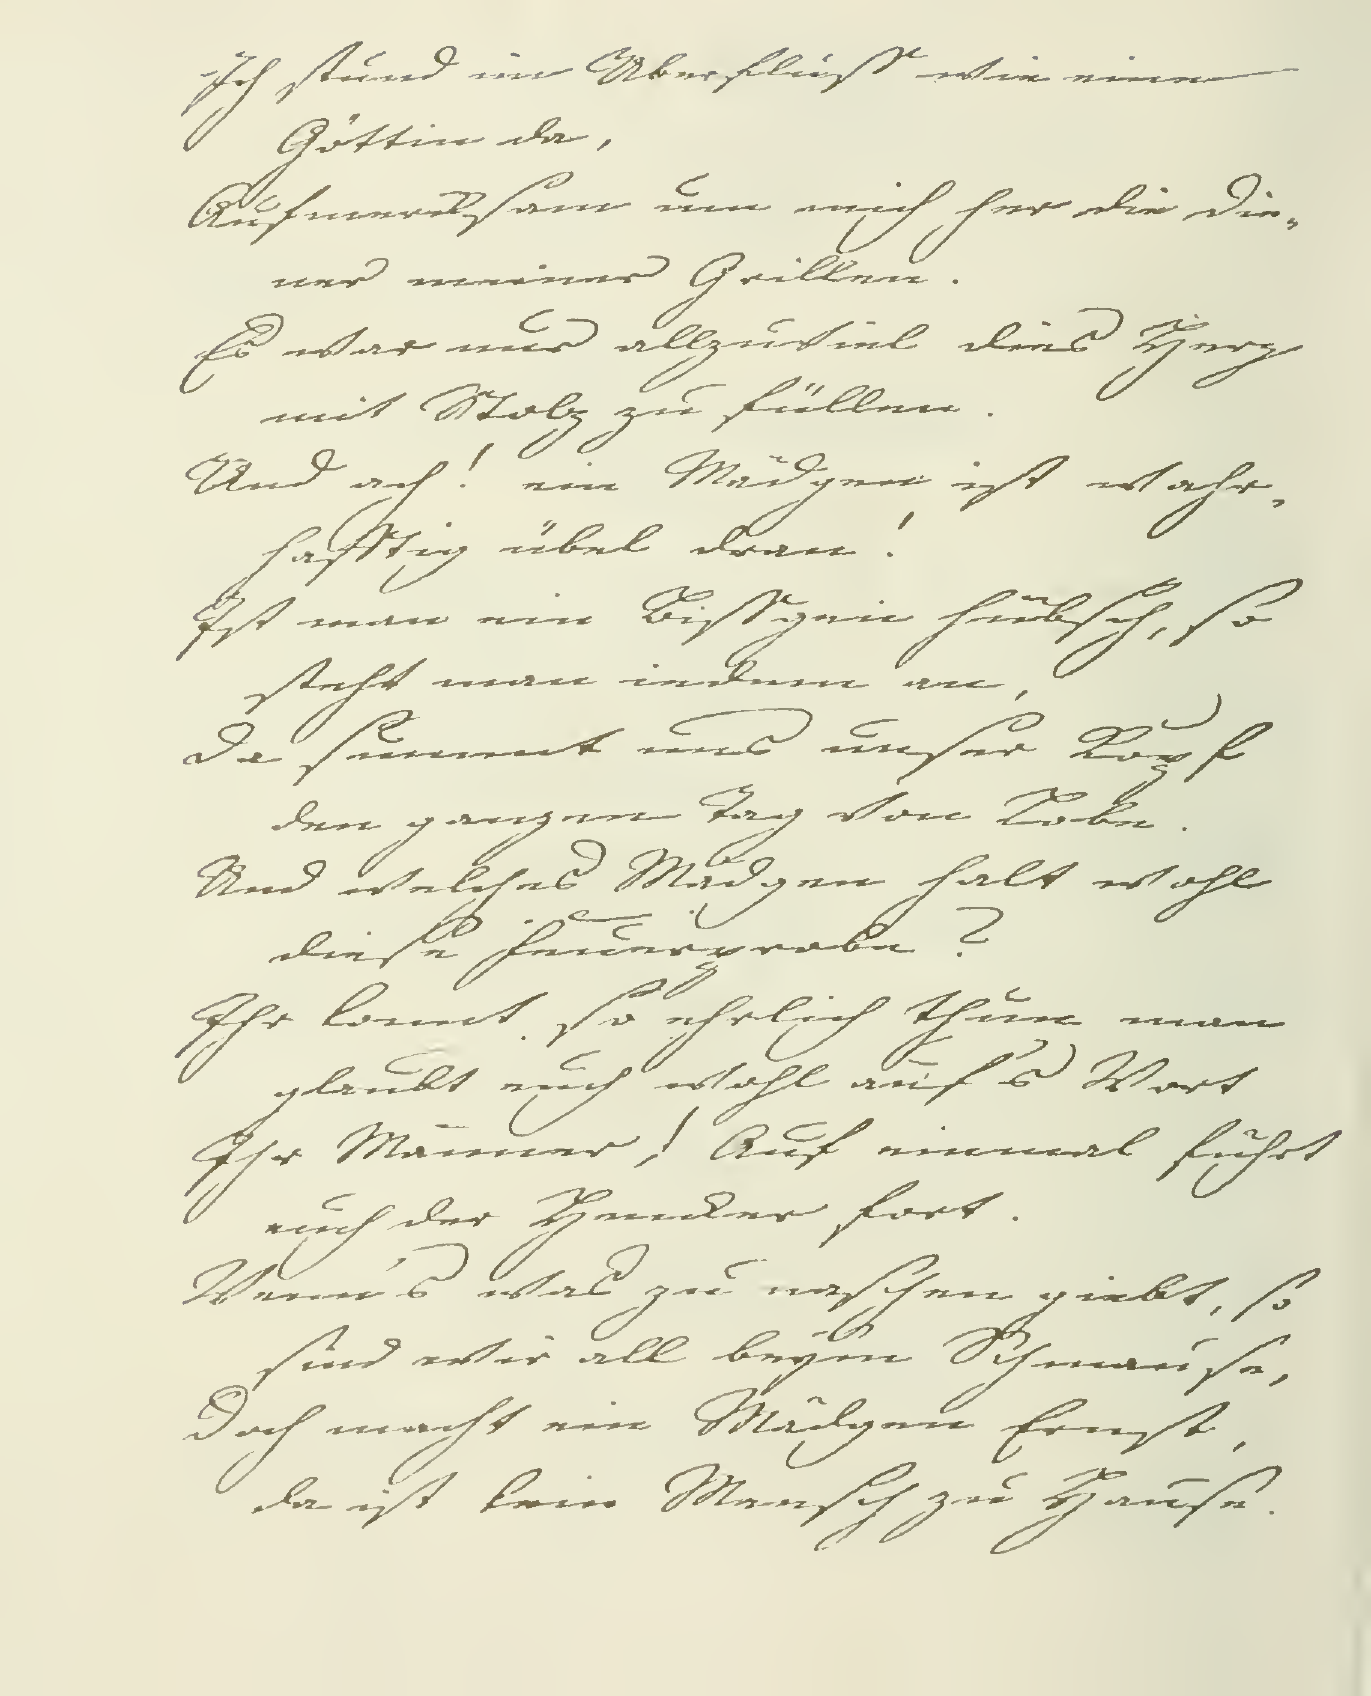 Ich stund im Überfluss wie eine
Göttin da,
Aufmercksam um mich her die Die-
ner meiner Grillen.
Es war nur allzuviel dies Herz
mit Stolz zu füllen.
Und ach! ein Mädgen ist wahr-
hafftig übel dran!
Ist man ein Bissgen hübsch, so
steht man iedem an,
Da summt uns unser Kopf
den ganzen Tag von Lobe.
Und welches Mädgen hält wohl
diese Feuerprobe?
Ihr könnt so ehrlich thun man
glaubt euch wohl auf's Wort
Ihr Männer! Auf einmal führt
euch der Hencker fort.
Wenn's was zu naschen giebt, so
sind wir all beym Schmause,
Doch macht ein Mädgen Ernst,
da ist kein Mensch zu Hause.